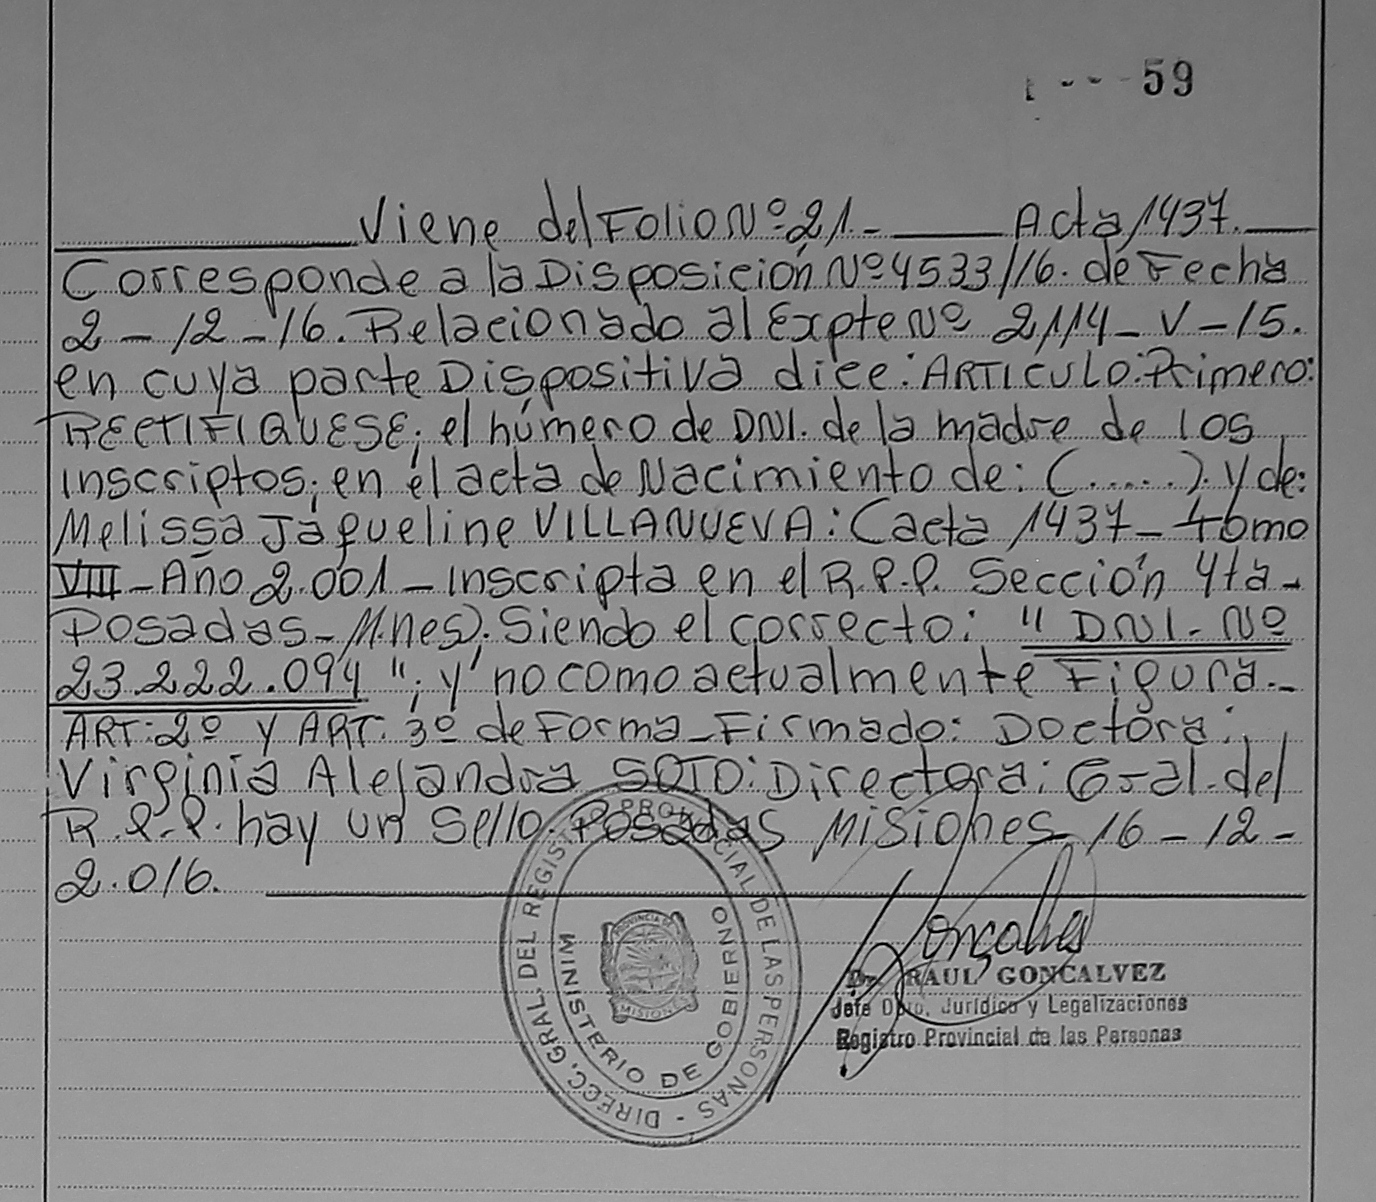 59
Viene del Folio Nº 21.- Acta 1437.
Corresponde a la Disposición Nº 4533/16. de Fecha
2-12-16. Relacionado al Expte Nº 2114-V-15.
en cuya parte Dispositiva dice: ARTICULO: Primero:
RECTIFIQUESE; el número de DNI. de la madre de los
inscriptos; en el acta de Nacimiento de: (.....). y de:
Melissa Jaqueline VILLANUEVA: (acta 1437- tomo
VIII - Año 2.001 - inscripta en el R.P.P. Sección 4ta-
Posadas- Mnes). Siendo el correcto: "DNI- Nº
23.222.094"; y no como actualmente Figura.-
ART: 2º y ART. 3º de Forma - Firmado: Doctora:
Virginia Alejandra SOTO: Directora: Gral. del
R.P.P. hay un Sello. Posadas Misiones 16-12-
2.016.
DIRECC. GRAL. DEL REGISTRO PROVINCIAL DE LAS PERSONAS -
MINISTERIO DE GOBIERNO
PROVINCIA DE
MISIONES
Dr. RAUL GONCALVEZ
Jefe Dpto. Jurídico y Legalizaciones
Registro Provincial de las Personas